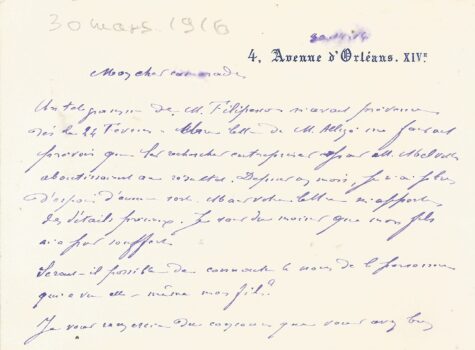 30 mars 1916
4, Avenue d'Orléans. XIVᵉ
Mon cher camarade
Un télégramme de M. Filipesco m'avait prévenu
dès le 24 Février. Une lettre de M. Allizé me faisait
prévoir que les recherches entreprises par M.
aboutissaient au résultat. Depuis un mois, je n'ai plus
d'espoir d'aucune sorte. Mais votre lettre m'apporte
des détails précieux. Je vois du moins que mon fils
n'a pas souffert.
Serait-il possible de connaître le nom de la personne
qui a vu elle-même mon fils ?
Je vous remercie du concours que vous avez bien